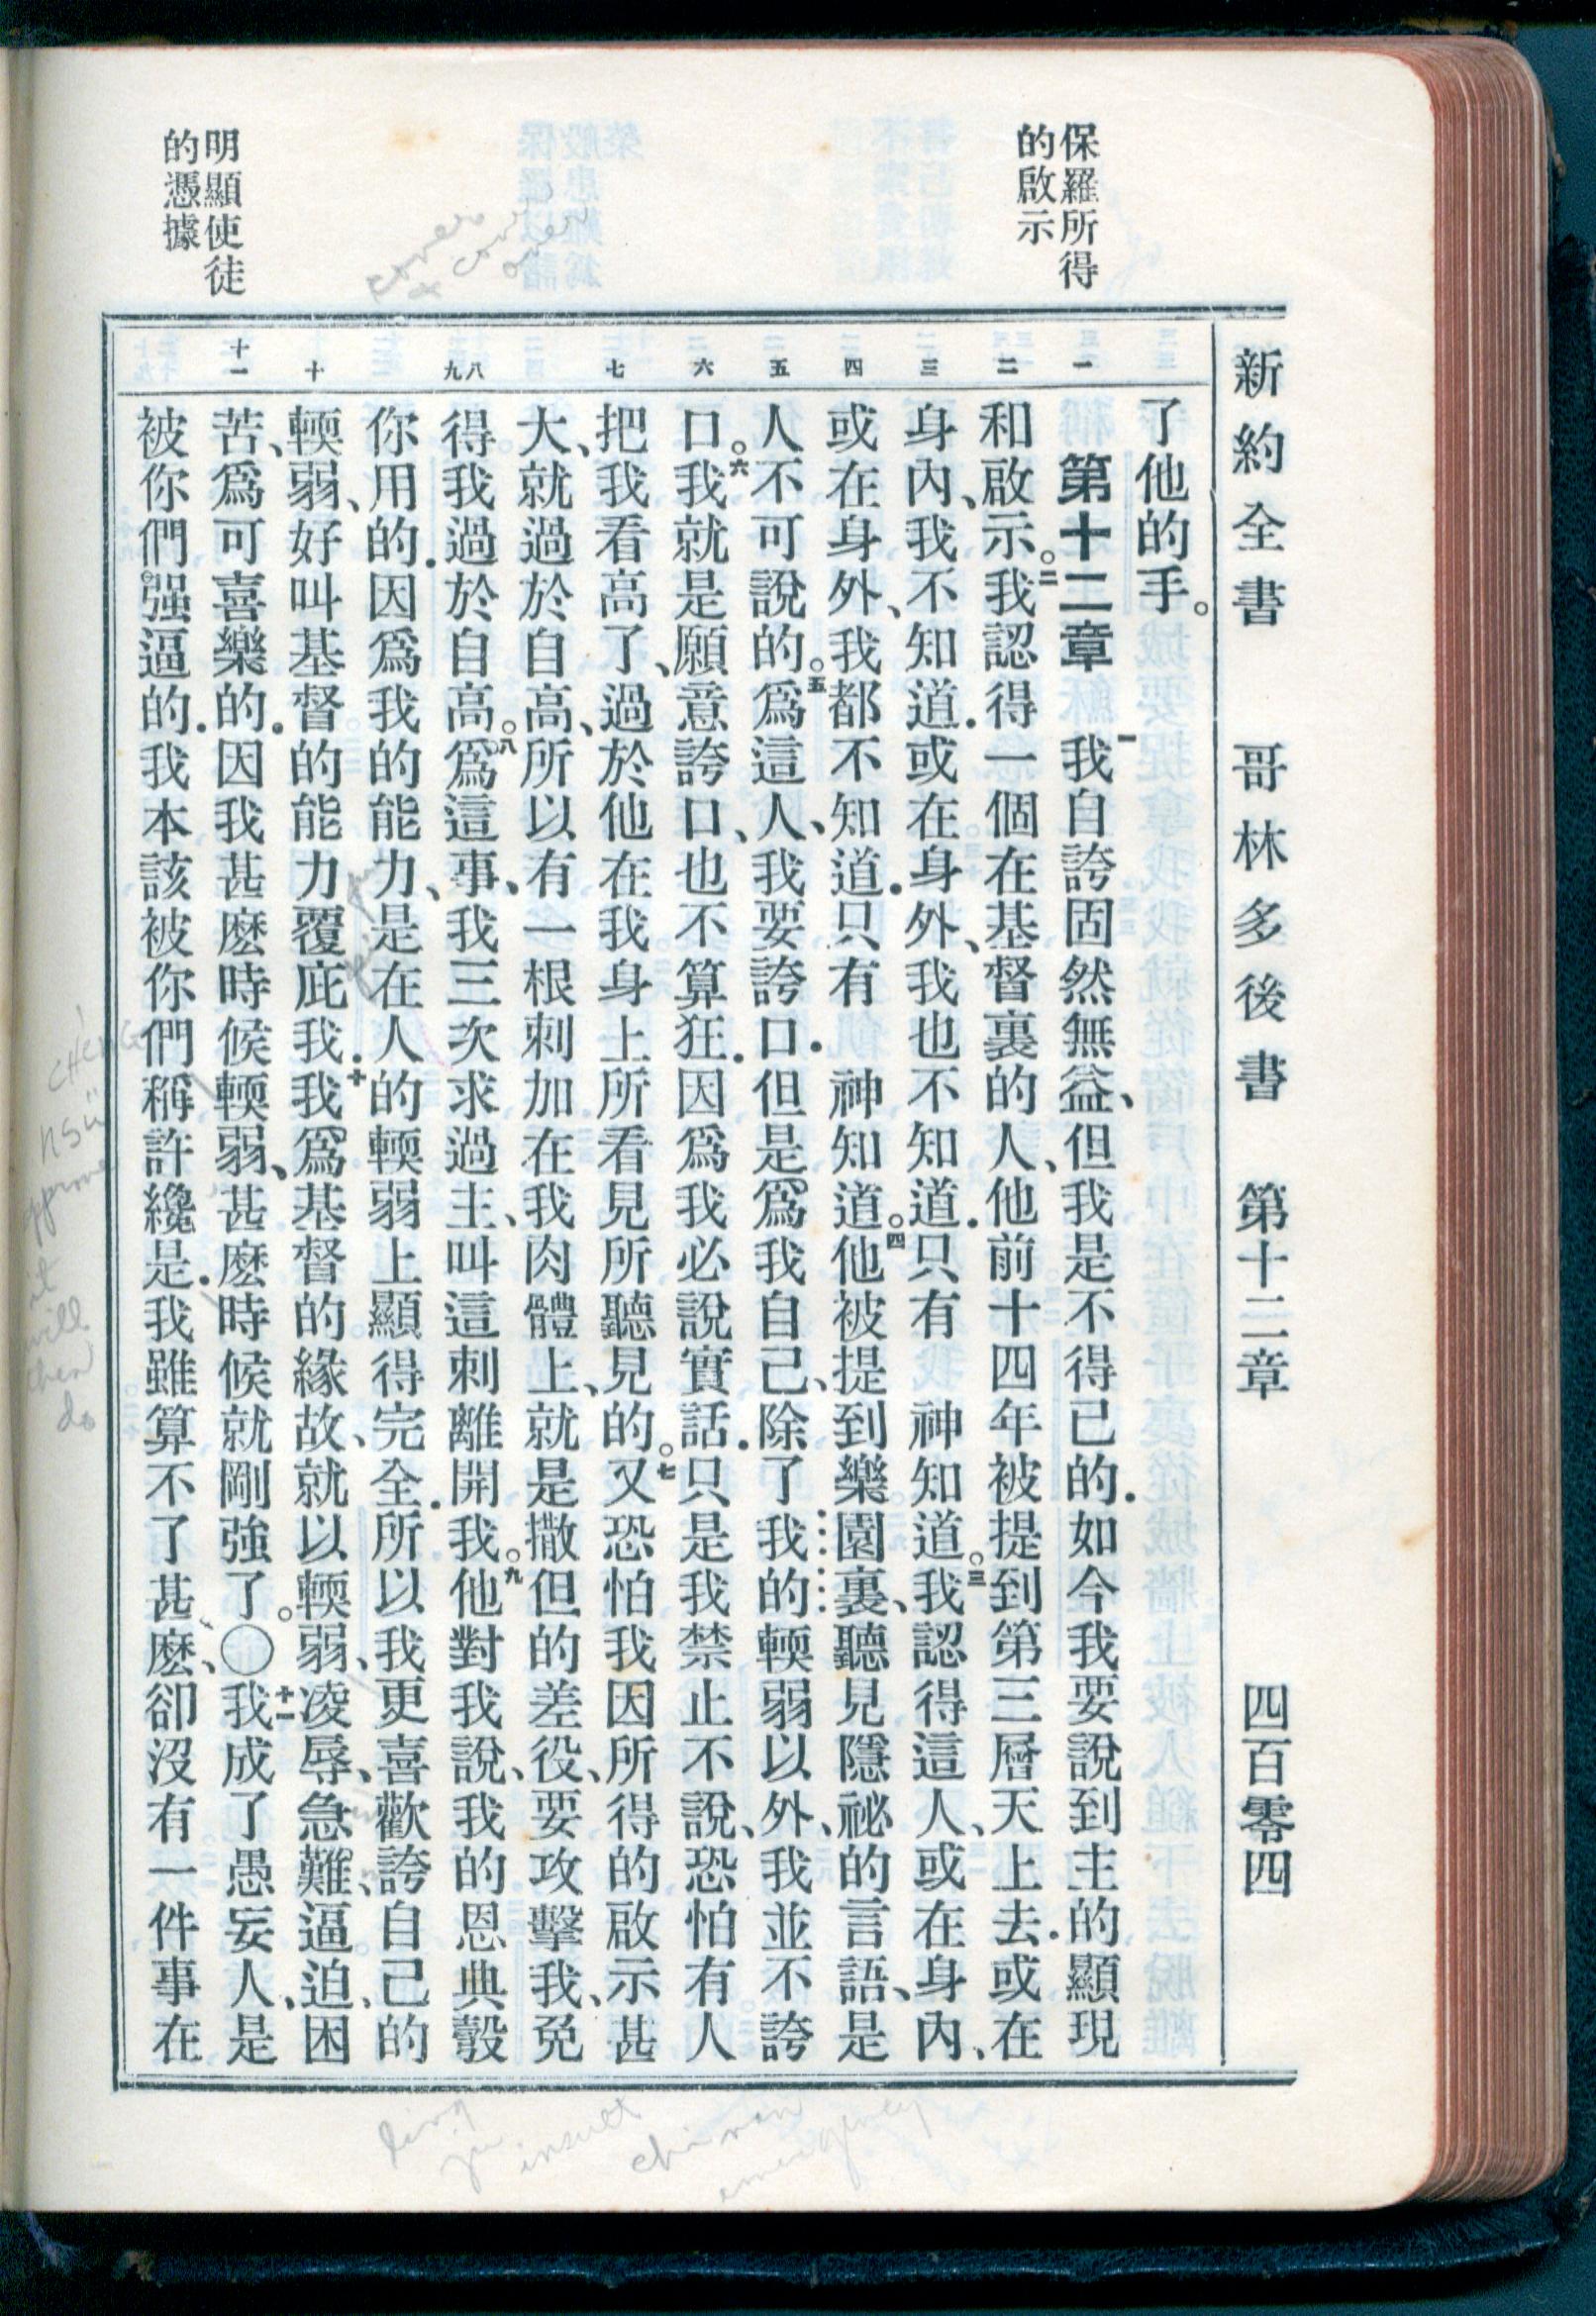 新約全書　哥林多後書　第十二章　四百零四
保羅所得
的啟示
明顯使徒
的憑據
一
二
三
四
五
六
七
八
九
十
十一
了他的手。
第十二章　一我自誇固然無益、但我是不得已的．如今我要說到主的顯現
和啟示。二我認得一個在基督裏的人、他前十四年被提到第三層天上去．或在
身內、我不知道．或在身外、我也不知道．只有　神知道。三我認得這人、或在身內、
或在身外、我都不知道．只有　神知道。四他被提到樂園裏、聽見隱祕的言語、是
人不可說的。五爲這人、我要誇口．但是爲我自己、除了我的輭弱以外、我並不誇
口。六我就是願意誇口、也不算狂．因爲我必說實話．只是我禁止不說、恐怕有人
把我看高了、過於他在我身上所看見所聽見的。七又恐怕我因所得的啟示甚
大、就過於自高、所以有一根刺加在我肉體上、就是撒但的差役、要攻擊我、免
得我過於自高。八爲這事、我三次求過主、叫這刺離開我。九他對我說、我的恩典彀
你用的．因爲我的能力、是在人的輭弱上顯得完全．所以我更喜歡誇自己的
輭弱、好叫基督的能力覆庇我．十我爲基督的緣故、就以輭弱、凌辱、急難、逼迫、困
苦、爲可喜樂的．因我甚麽時候輭弱、甚麽時候就剛強了。〇十一我成了愚妄人、是
被你們强逼的．我本該被你們稱許纔是．我雖算不了甚麽、卻沒有一件事在
cover
& cover
over
CHENG
HSÜ
approve
it
will
then
do
ling
ju
insult
chi nan
emergency